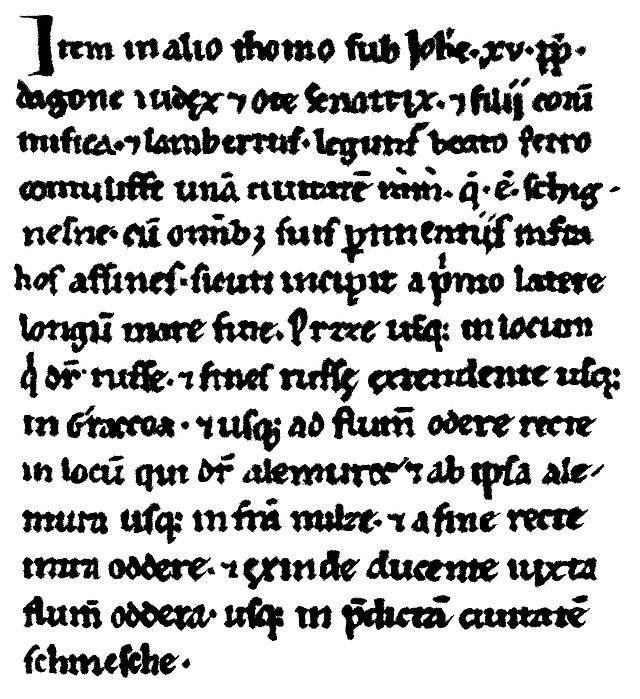 Item in alio thomo sub Joħe. xv. pp̄.
dagone iudęx ⁊ Ote senatrix. ⁊ filii eorū
misica. ⁊ lambertus. leguntˢ beato petro
contulisse unā ciuitatē in in. q̄. ē. schig-
nesne. cū omīb; suis ptinentiis infra
hos affines. sicuti incipit a pͥmo latere
longū mare fine. Pruzze usq; in locum
q̇ dr̄ russe. ⁊ fines russę extendente usq;
in Craccoa. ⁊ usq; ad flum̄ odere recte
in locū qui dr̄ alemurę ⁊ ab ipsa ale-
mura usq; in frā milze. ⁊ a fine recte
intra oddere. ⁊ exinde ducente iuxta
flum̄ oddera. usq; in p̄dictā ciuitatē
schinesche.